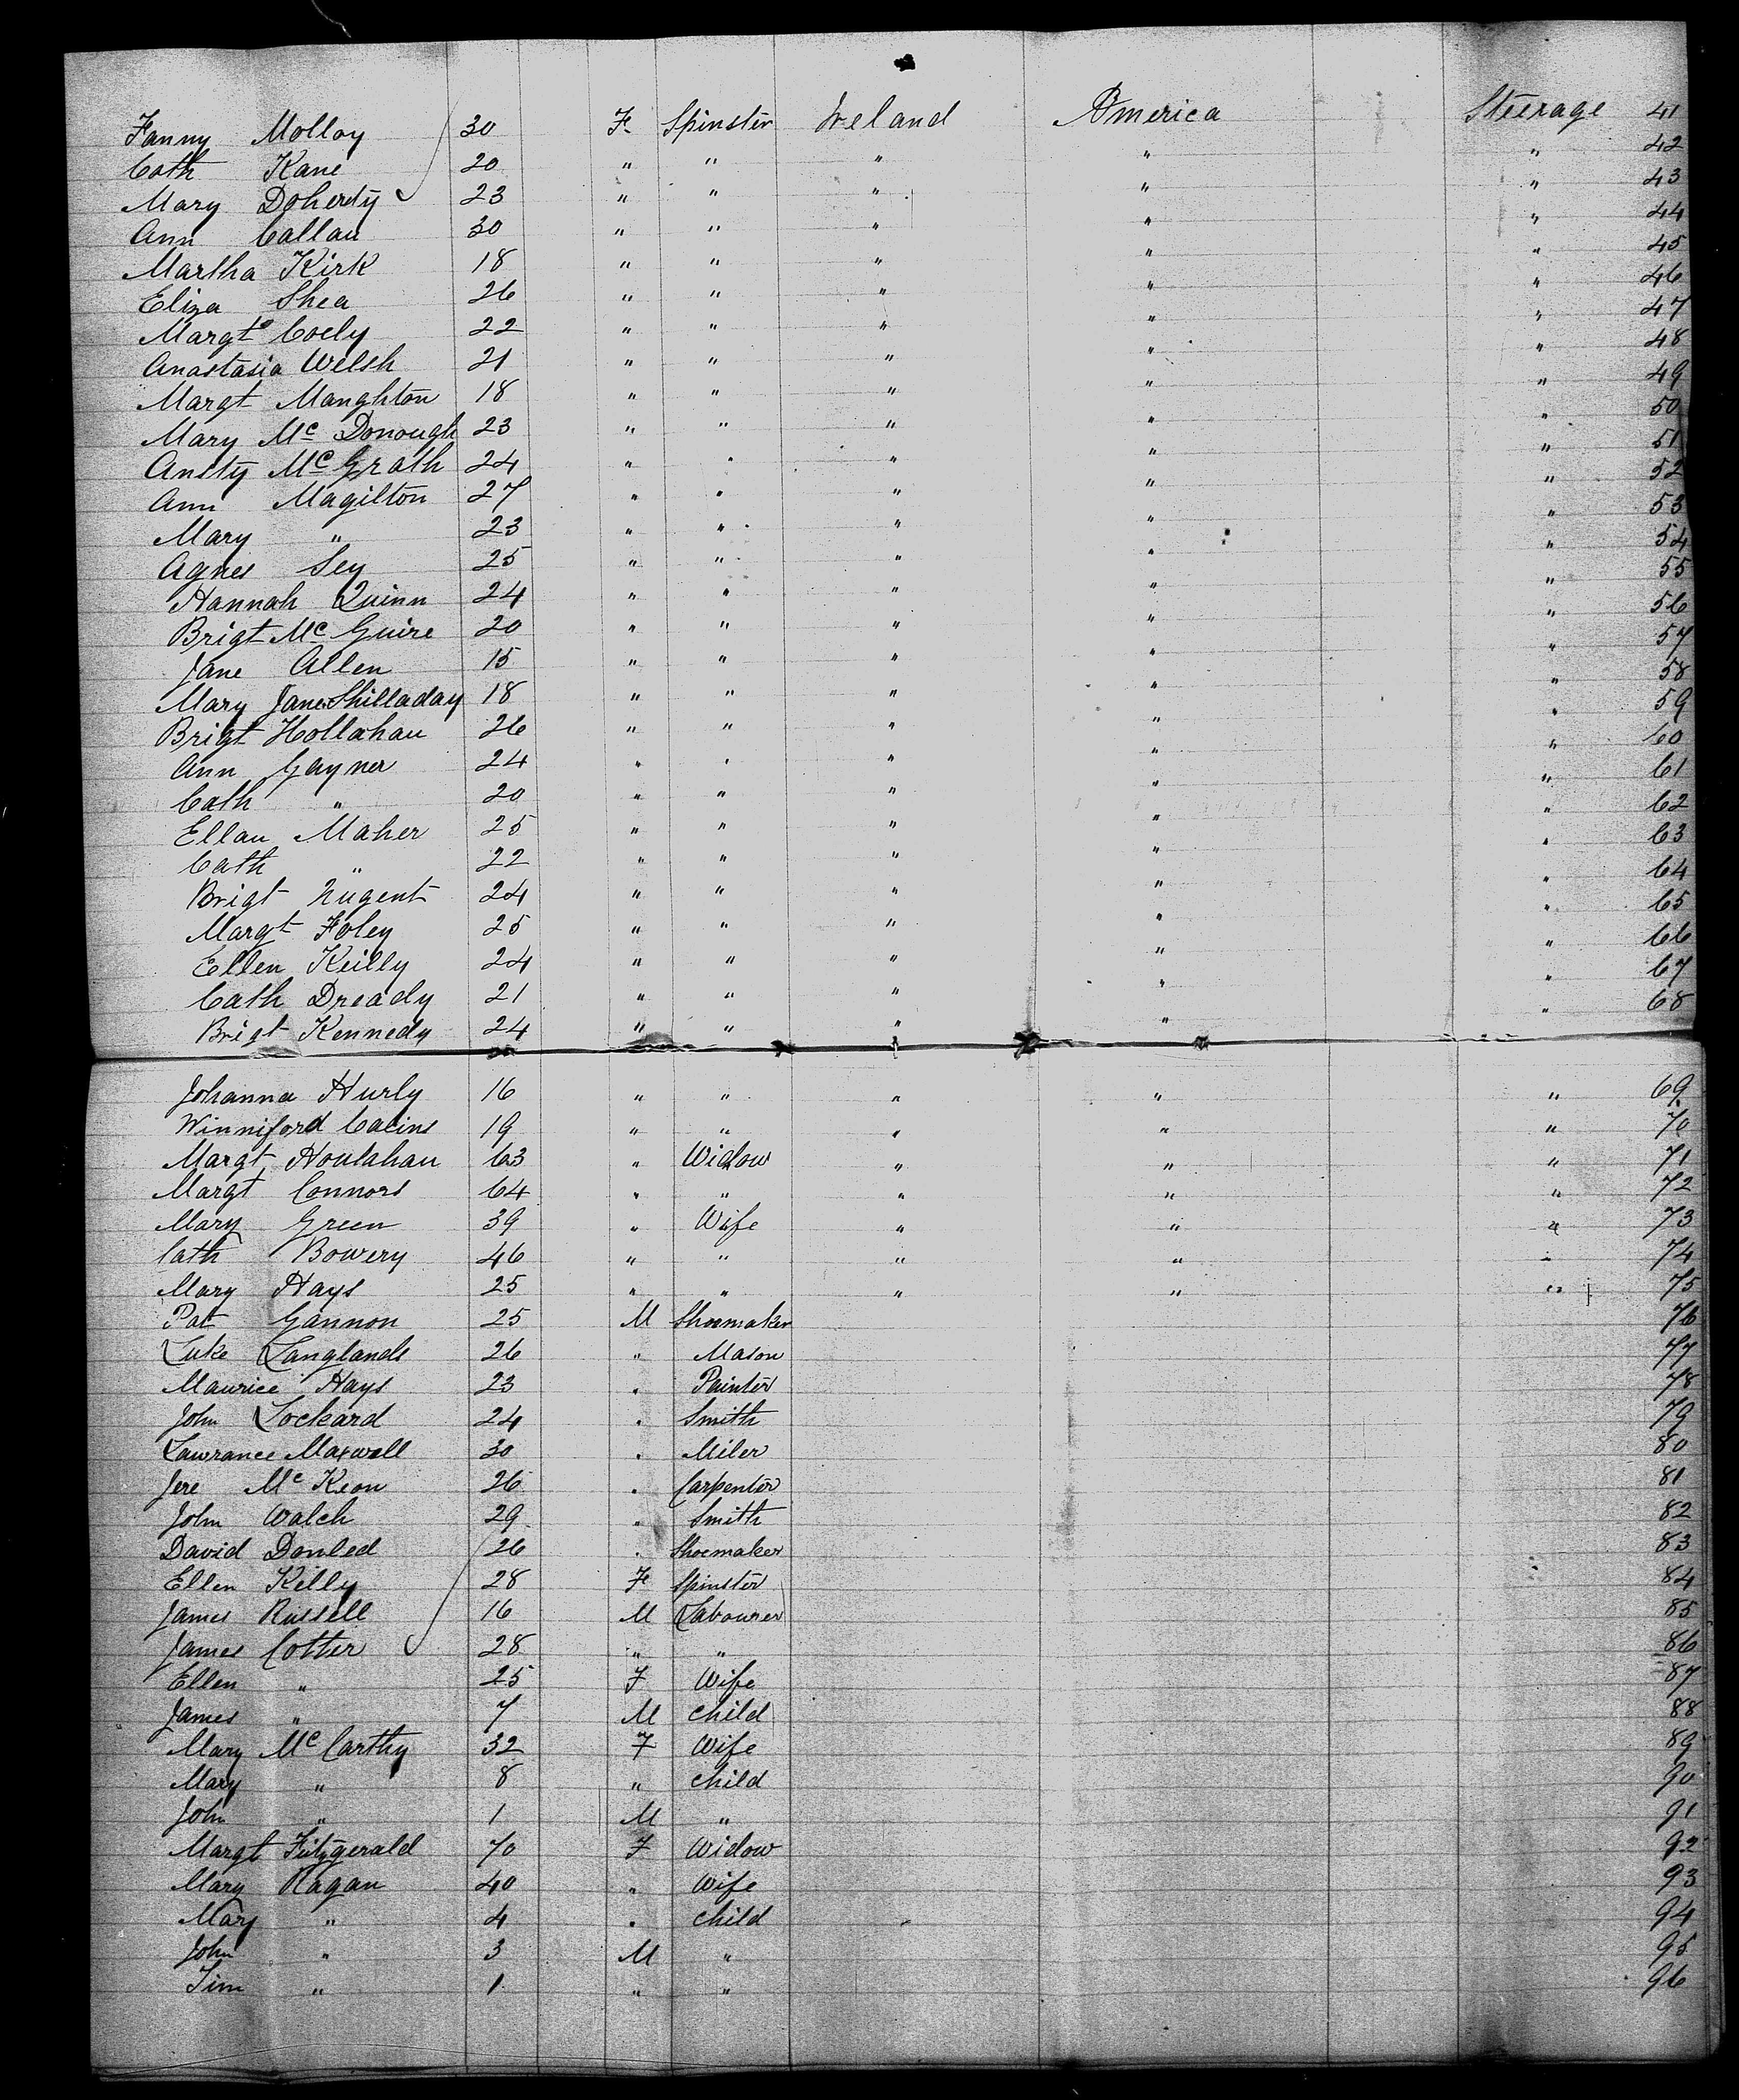 Fanny Molloy 30 F. Spinster Ireland America Steerage 41
Cath Kane 20 " " " " " 42
Mary Doherty 23 " " " " " 43
Ann Callan 30 " " " " " 44
Martha Kirk 18 " " " " " 45
Eliza Shea 26 " " " " " 46
Margt Coely 22 " " " " " 47
Anastasia Welsh 21 " " " " " 48
Margt Manghton 18 " " " " " 49
Mary Mc Donough 23 " " " " " 50
Ansty Mc Grath 24 " " " " " 51
Ann Magilton 27 " " " " " 52
Mary " 23 " " " " " 53
Agnes Sey 25 " " " " " 54
Hannah Quinn 24 " " " " " 55
Brigt Mc Guire 20 " " " " " 56
Jane Allen 15 " " " " " 57
Mary Jane Shilladay 18 " " " " " 58
Brigt Hollahan 26 " " " " " 59
Ann Gayner 24 " " " " " 60
Cath " 20 " " " " " 61
Ellan Maher 25 " " " " " 62
Cath " 22 " " " " " 63
Brigt Nugent 24 " " " " " 64
Margt Foley 25 " " " " " 65
Ellen Keilly 24 " " " " " 66
Cath Dready 21 " " " " " 67
Brigt Kennedy 24 " " " " " 68
Johanna Hurly 16 " " " " " 69
Winniford Calins 19 " " " " " 70
Margt Houlahan 63 " Widow " " " 71
Margt Connors 64 " " " " " 72
Mary Green 39 " Wife " " " 73
Cath Bowery 46 " " " " " 74
Mary Hays 25 " " " " " 75
Pat Gannon 25 M Shoemaker 76
Luke Langlands 26 " Mason 77
Maurice Hays 23 " Painter 78
John Lockard 24 " Smith 79
Lawrance Maxwell 30 " Miler 80
Jere Mc Keon 26 " Carpenter 81
John Walch 29 " Smith 82
David Donled 26 " Shoemaker 83
Ellen Killy 28 F Spinster 84
James Russell 16 M Labourer 85
James Cotter 28 " " 86
Ellen " 25 F Wife 87
James " 7 M Child 88
Mary Mc Carthy 32 F Wife 89
Mary " 8 " Child 90
John " 1 M " 91
Margt Fitzgerald 70 F Widow 92
Mary Ragan 40 " Wife 93
Mary " 4 " Child 94
John " 3 M " 95
Tim " 1 " " 96